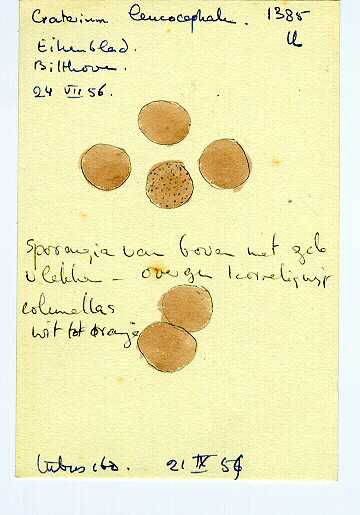 Craterium leucocephalum. 1385
Eikenblad.
Bilthoven.
24 VII 56.
Sporangia van boven met gele
vlekken - overgen korrelig wit
columellas
wit tot oranje
21 IX 56